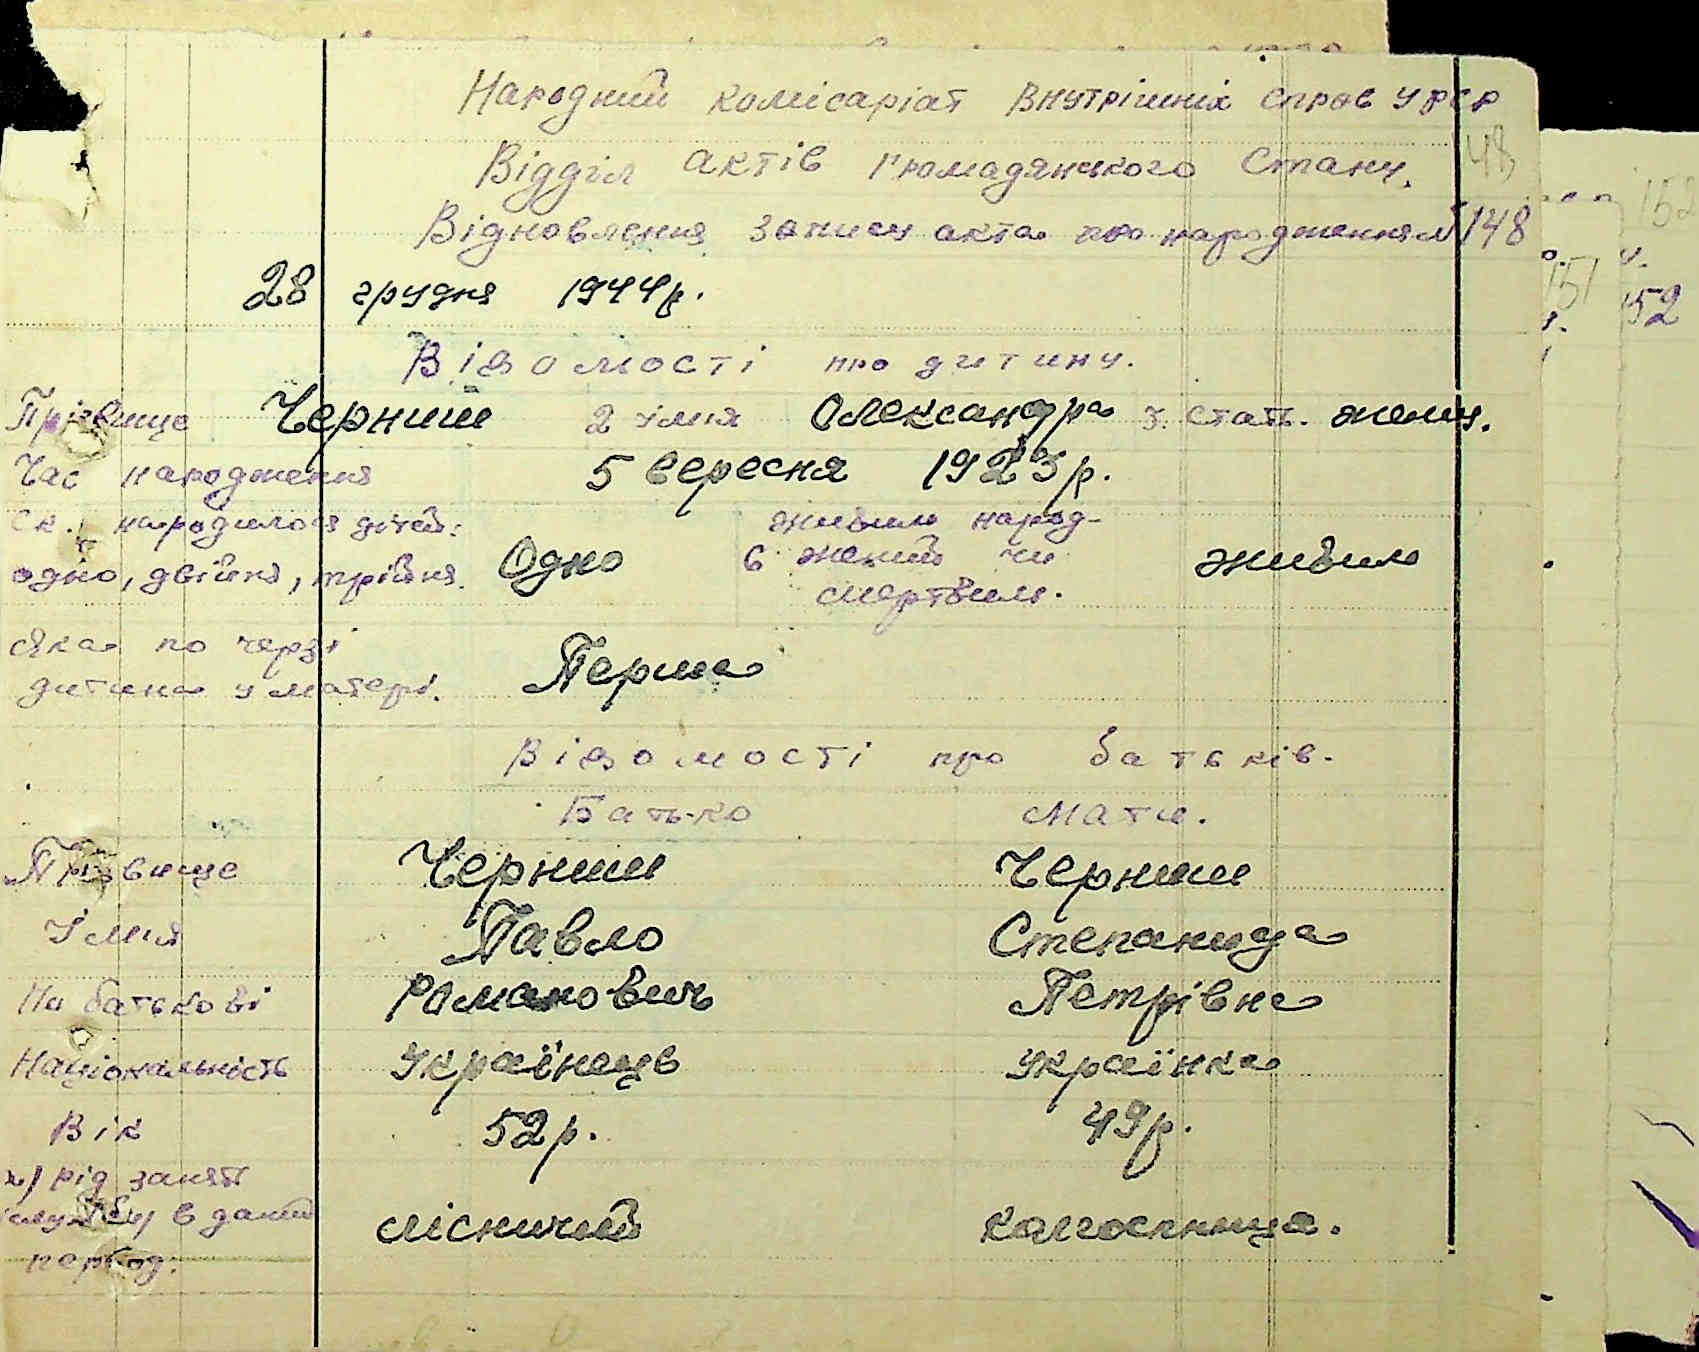 Народний комісаріат внутрішніх справ УРСР
48
Відділ актів громадянського стану.
Відновлення запису акта про народження № 148
28 грудня 1944 р.
Відомості про дитину.
Прізвище Черниш 2 імя Олександра 3. стать. жіноч.
Час народження 5 вересня 1923 р.
Ск. народилося дітей: одно, двійня, трійня. Одно 6 живим народжений чи мертвим. живим
Яка по черзі
дитина у матері. Перша
Відомості про батьків.
Батько Мати.
Прізвище Черниш Черниш
Імя Павло Степанида
По батькові Романович Петрівна
Національність Українець Українка
Вік 52 р. 49 р.
рід занять
службу в даний
період. лісничий колгоспниця.
152
151
152